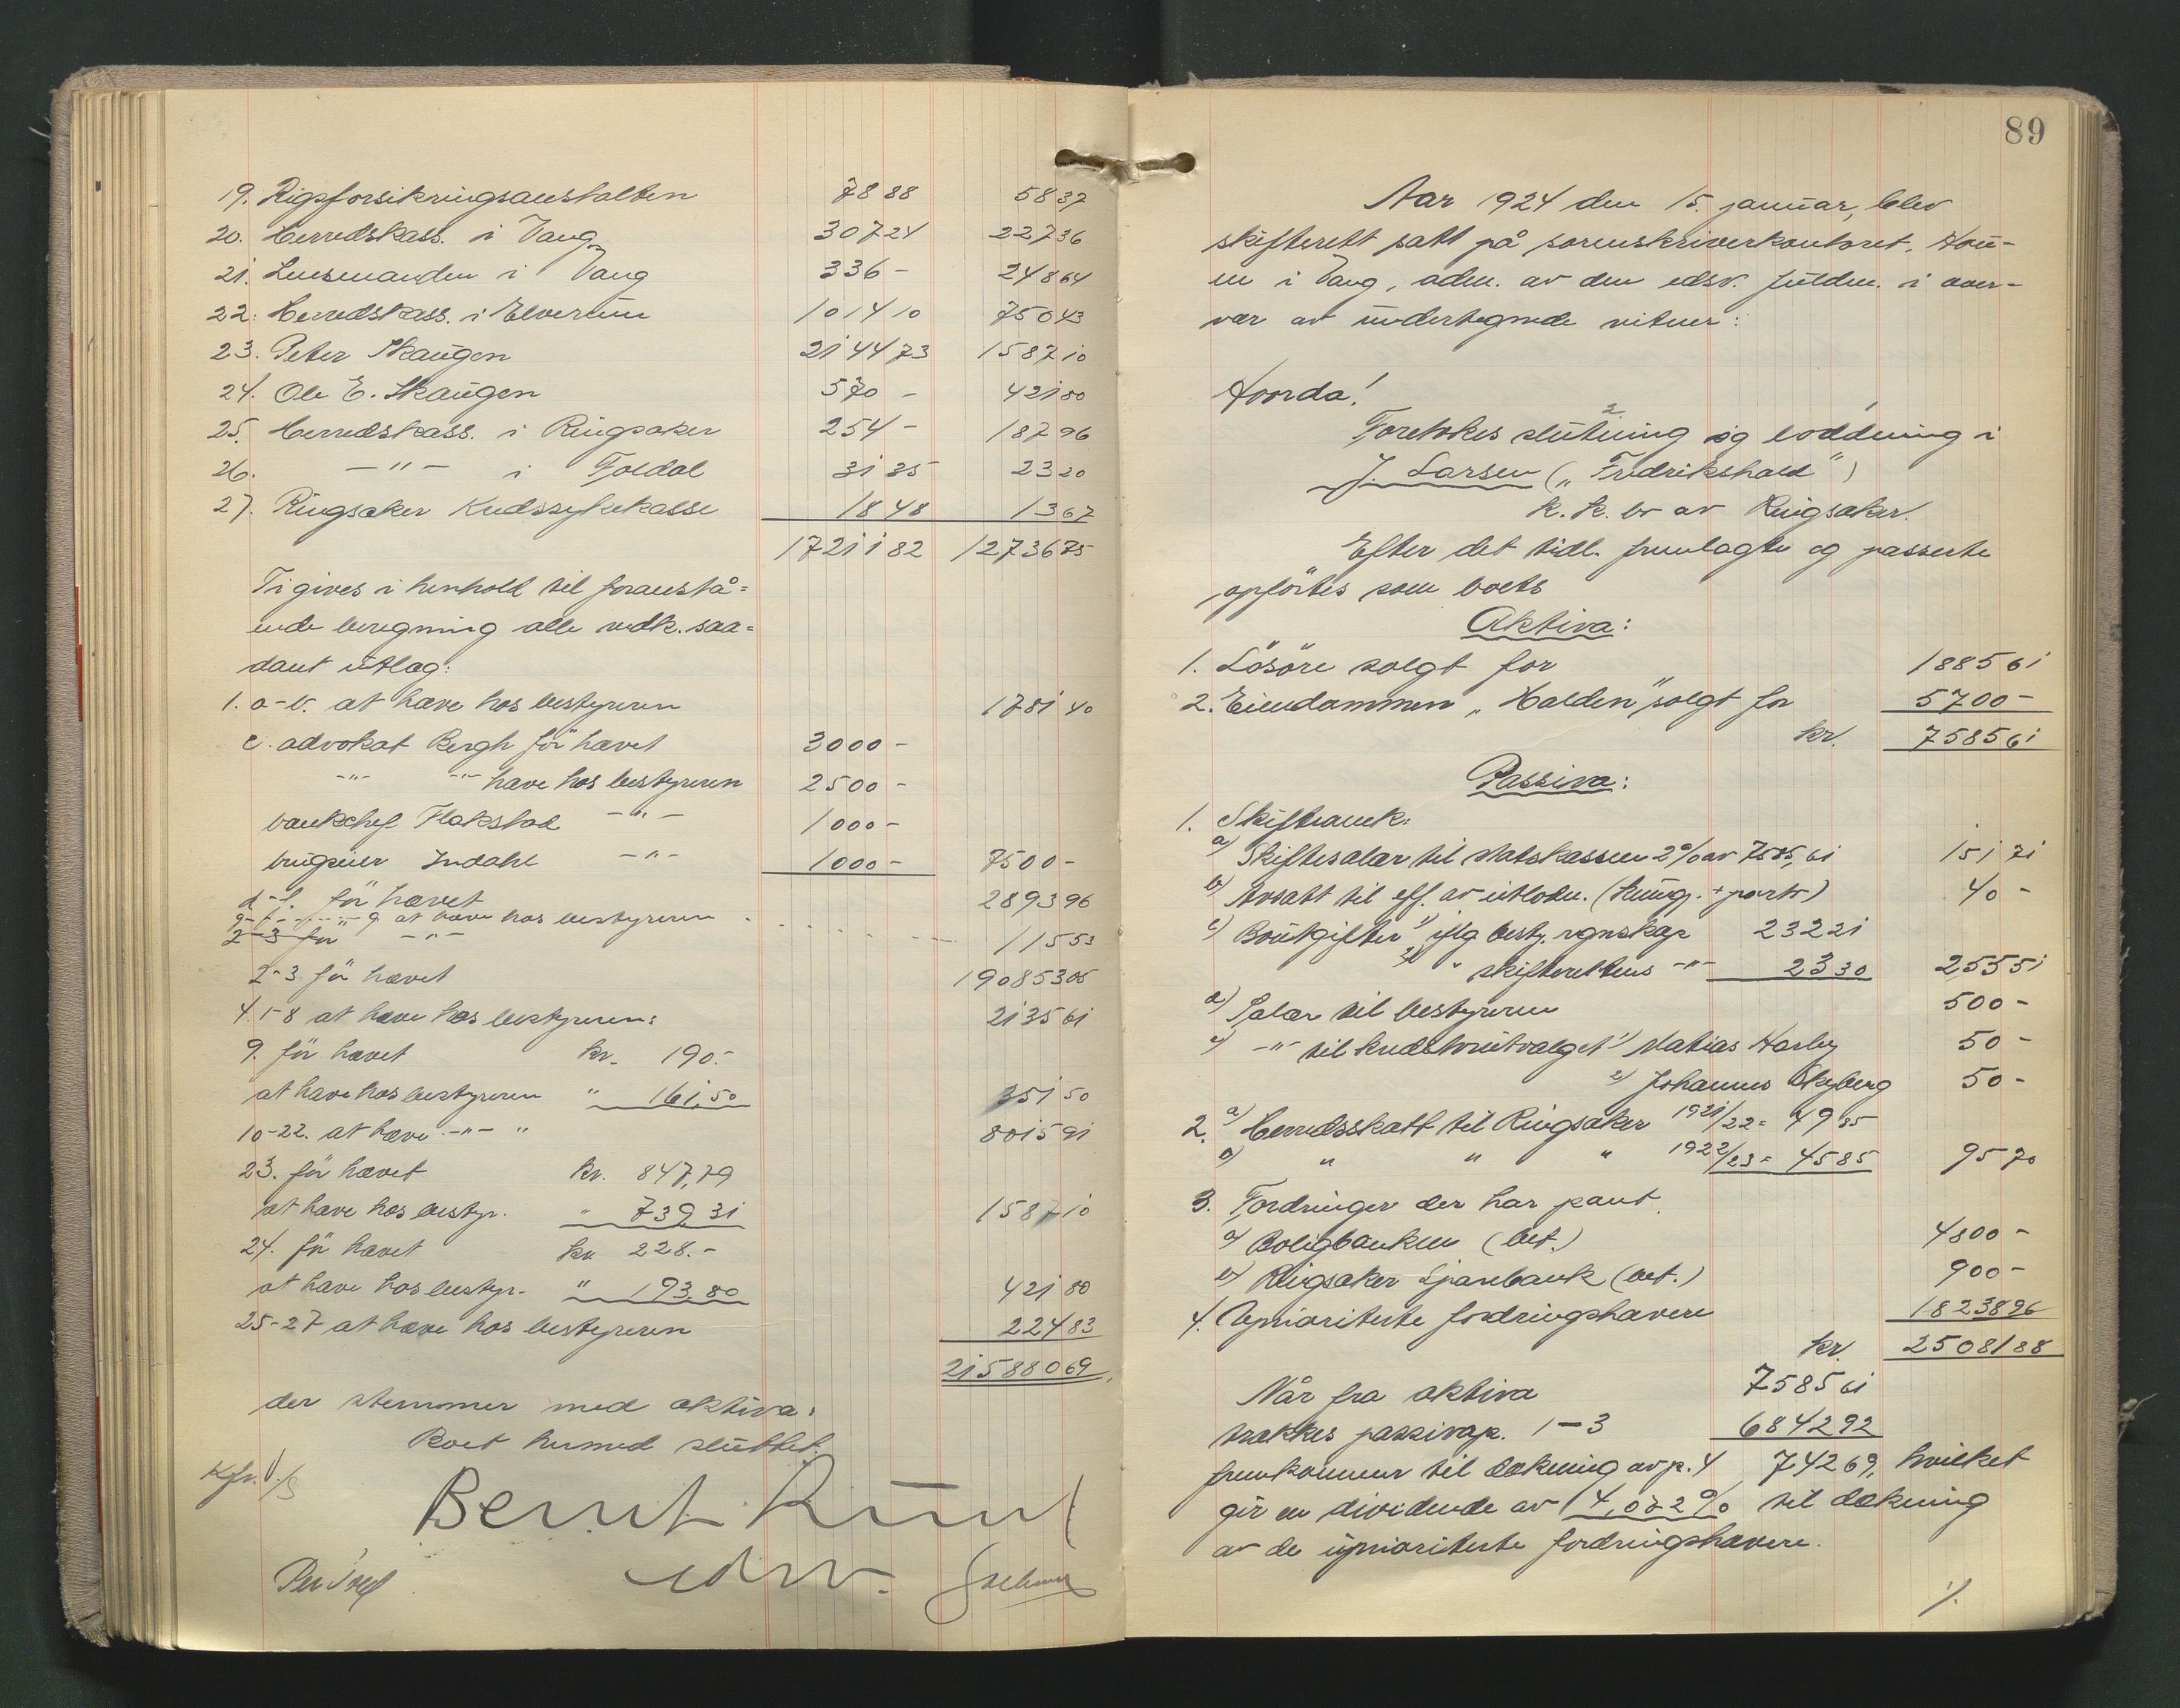 19. Rigsforsikringsanstalten 78 88 58 37
20. Herredskass. i Vang 307 24 227 36
21. Lensmanden i Vang 336 - 248 64
22. Herredskass. i Elverum 1014 10 750 43
23. Peter Skaugen 2144 73 1587 10
24. Ole E. Skaugen 570 - 421 80
25. Herredskass. i Ringsaker 254 - 187 96
26. -"- i Foldal 31 35 23 20
27. Ringsaker Kredssykekasse 18 48 13 67
17211 82 12736 75
Ti gives i henhold til foranstå=
ende beregning alle vedk. saa=
dant utlæg:
1. a-b. at hæve hos bestyreren 1781 40
c. advokat Bergh før hævet 3000 -
-"- -"- hæve hos bestyreren 2500 -
bankchef Flakstad -"- 1000 -
brugseier Indahl -"- 1000 - 7500 -
d-f. før hævet 2893 96
g at hæve hos bestyreren
2-3 før -"- 115 53
2-3 før hævet 190853 05
4.1-8 at hæve hos bestyreren: 2135 61
9. før hævet kr. 190.-
at hæve hos bestyreren " 161,50 351 50
10-22. at hæve -"- " 8015 91
23. før hævet kr. 847,79
at hæve hos bestyr. " 739 31 1587 10
24. før hævet kr. 228.-
at hæve hos bestyr. " 193,80 421 80
25-27 at hæve hos bestyreren 224 83
215880 69
der stemmer med aktiva:
Boet hermed sluttet.
Bernt
edsv.
89
Aar 1924 den 15. januar, blev
skifterett satt på sorenskriverkontoret, Hou-
en i Vang, adm. av den edsv. fuldm. i over-
vær av undertegnede vitner:
Hvorda!
Foretokes slutning og loddning i
J. Larsen („Fredrikshald")
k. k. bo av Ringsaker.
Efter det tidl. fremlagte og passerte
opførtes som boets
Aktiva:
1. Løsøre solgt for 1885 61
2. Eiendommen „Halden" solgt for 5700 -
kr. 7585 61
Passiva:
1. Skifteomk:
a) Skiftesalær til statskassen 2% av 7585,61 151 71
b) Avsatt til eff. av utlodn. (kung. + porto) 40 -
c) Boutgifter 1) iflg. besty. rgnskap 232 21
2) " skifterettens -"- 23 30 255 51
d) Salær til bestyreren 500 -
e) -"- til kreditorutvalget 1) Matias Harby 50 -
2) Johannes Skyberg 50 -
2. a) Herredsskatt til Ringsaker 1921/22 = 49 85
b) " " " 1922/23 = 45 85 95 70
3. Fordringer der har pant.
a) Boligbanken (bet.) 4800 -
b) Ringsaker Sparebank (bet.) 900 -
4. Uprioriterte fordringshavere 18238 96
kr. 25081 88
Når fra aktiva 7585 61
trækkes passivap. 1-3 6842 92
fremkommer til dækning av p. 4 742 69, hvilket
gir en dividende av 4,072% til dækning
av de uprioriterte fordringshavere.